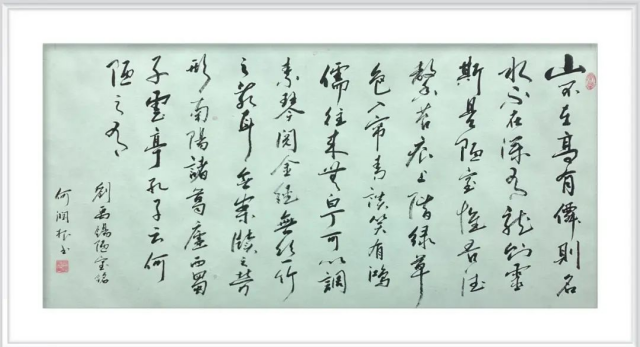 山不在高有僊則名
水不在深有龍則靈
斯是陋室惟吾德
馨苔痕上階綠草
色入帘青談笑有鴻
儒往來無白丁可以調
素琴閱金經無絲竹
之亂耳無案牘之勞
形南陽諸葛廬西蜀
子雲亭孔子云何
陋之有
劉禹錫陋室銘
何潤 书